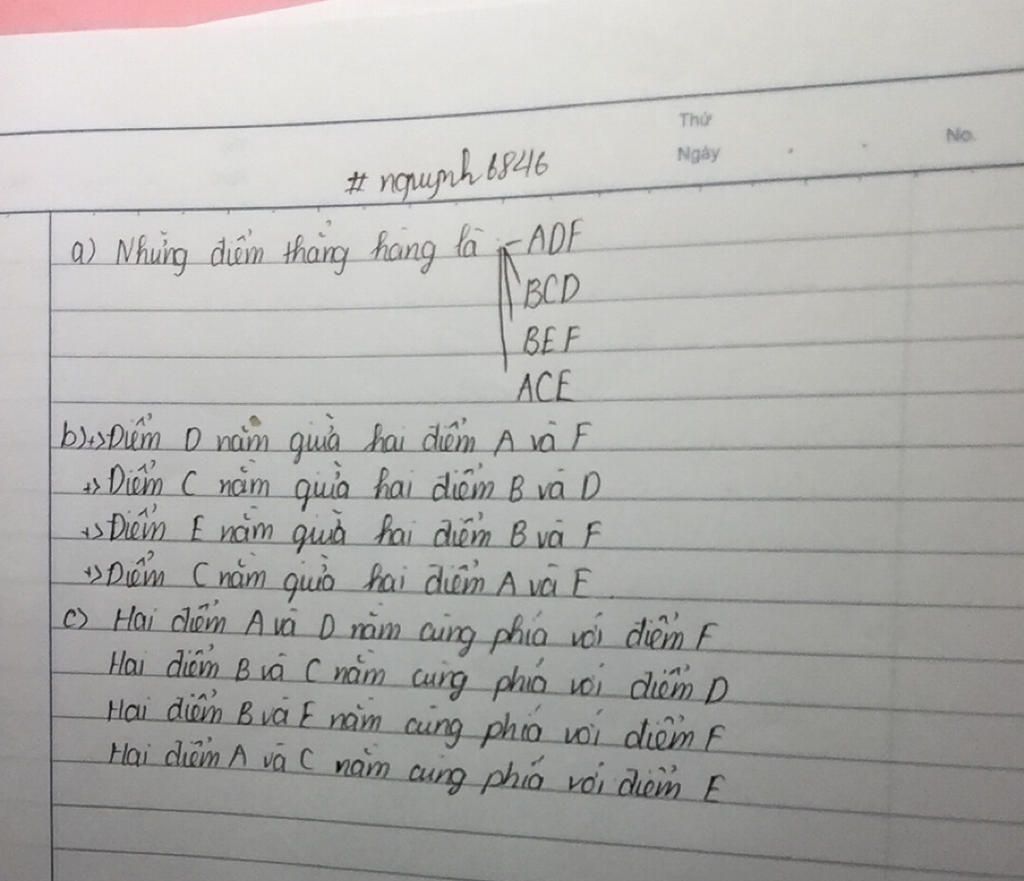 Thứ
Ngày
No.
# nquynh6846
a) Những điểm thẳng hàng là - ADF
BCD
BEF
ACE
b) +) Điểm D nằm giữa hai điểm A và F
+) Điểm C nằm giữa hai điểm B và D
+) Điểm E nằm giữa hai điểm B và F
+) Điểm C nằm giữa hai điểm A và E
c) Hai điểm A và D nằm cùng phía với điểm F
Hai điểm B và C nằm cùng phía với điểm D
Hai điểm B và E nằm cùng phía với điểm F
Hai điểm A và C nằm cùng phía với điểm E